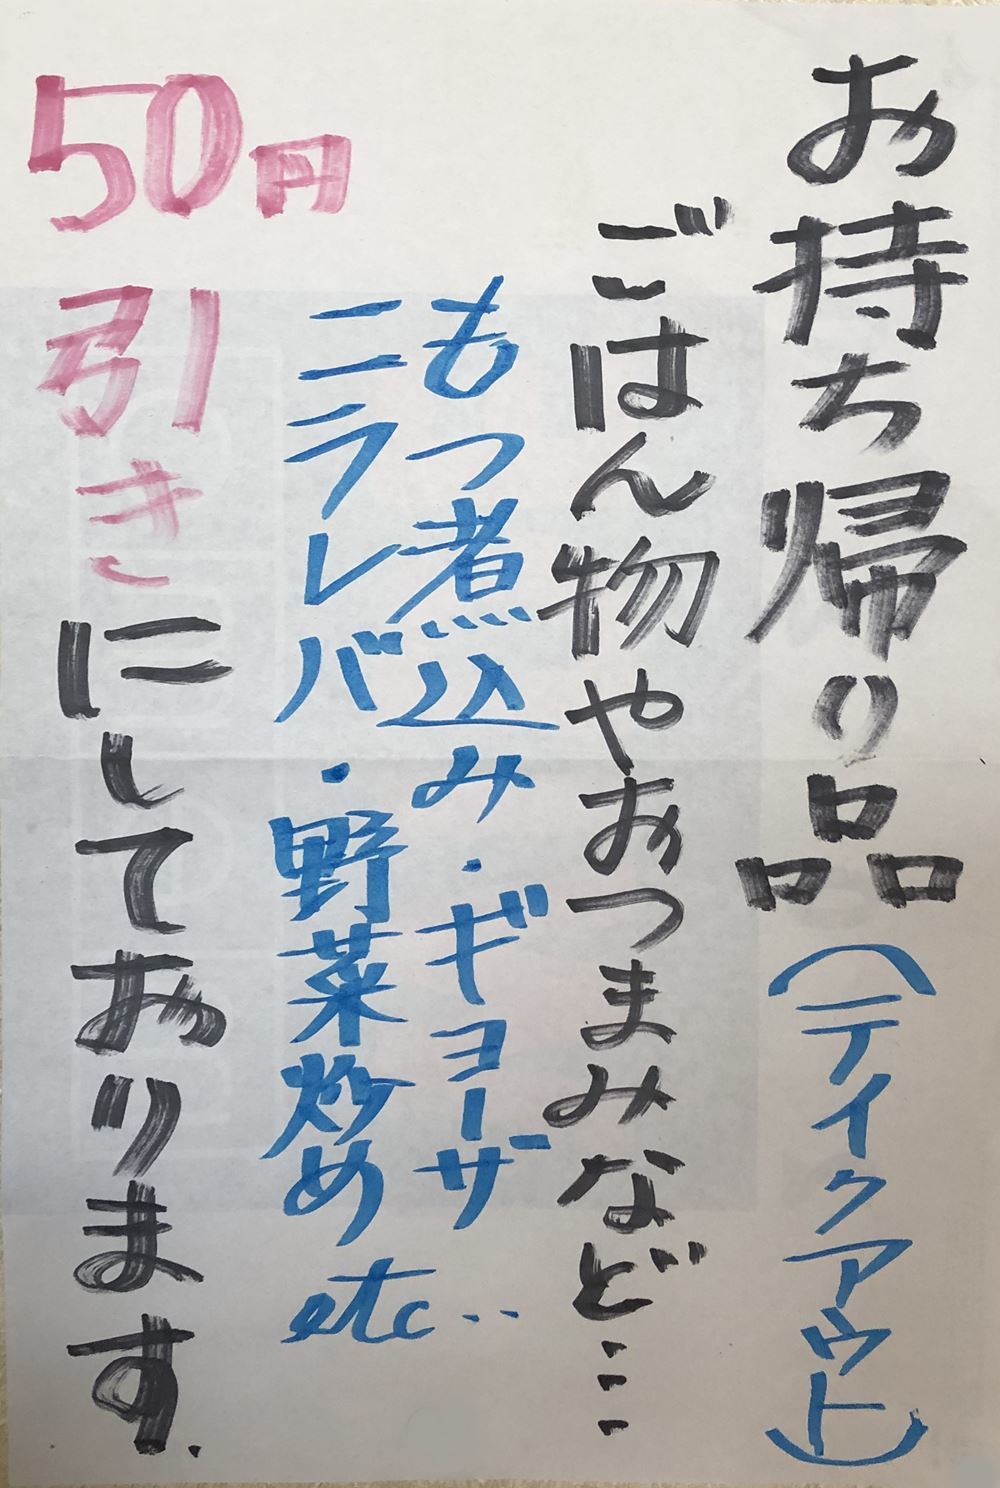 お持ち帰り品(テイクアウト)
ごはん物やおつまみなど…
もつ煮込み・ギョーザ
ニラレバ・野菜炒め etc..
50円引きにしております.